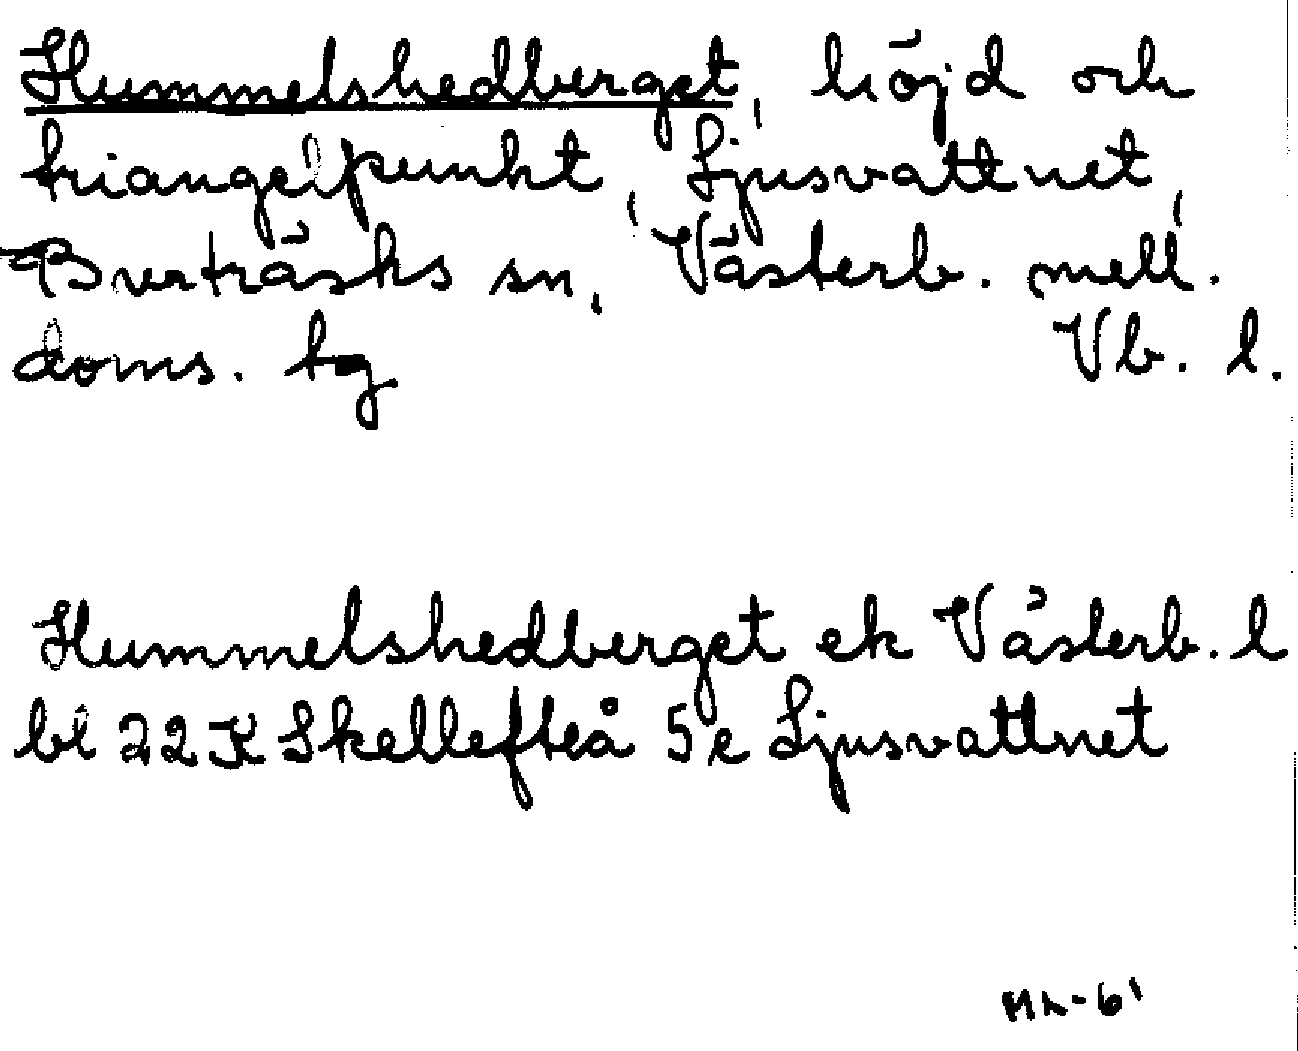 Hummelshedberget, höjd och
triangelpunkt, Ljusvattnet,
Burträsks sn, Västerb. mell.
doms. tg Vb. l.
Hummelshedberget ek Västerb. l
bl 22 K Skellefteå 5e Ljusvattnet